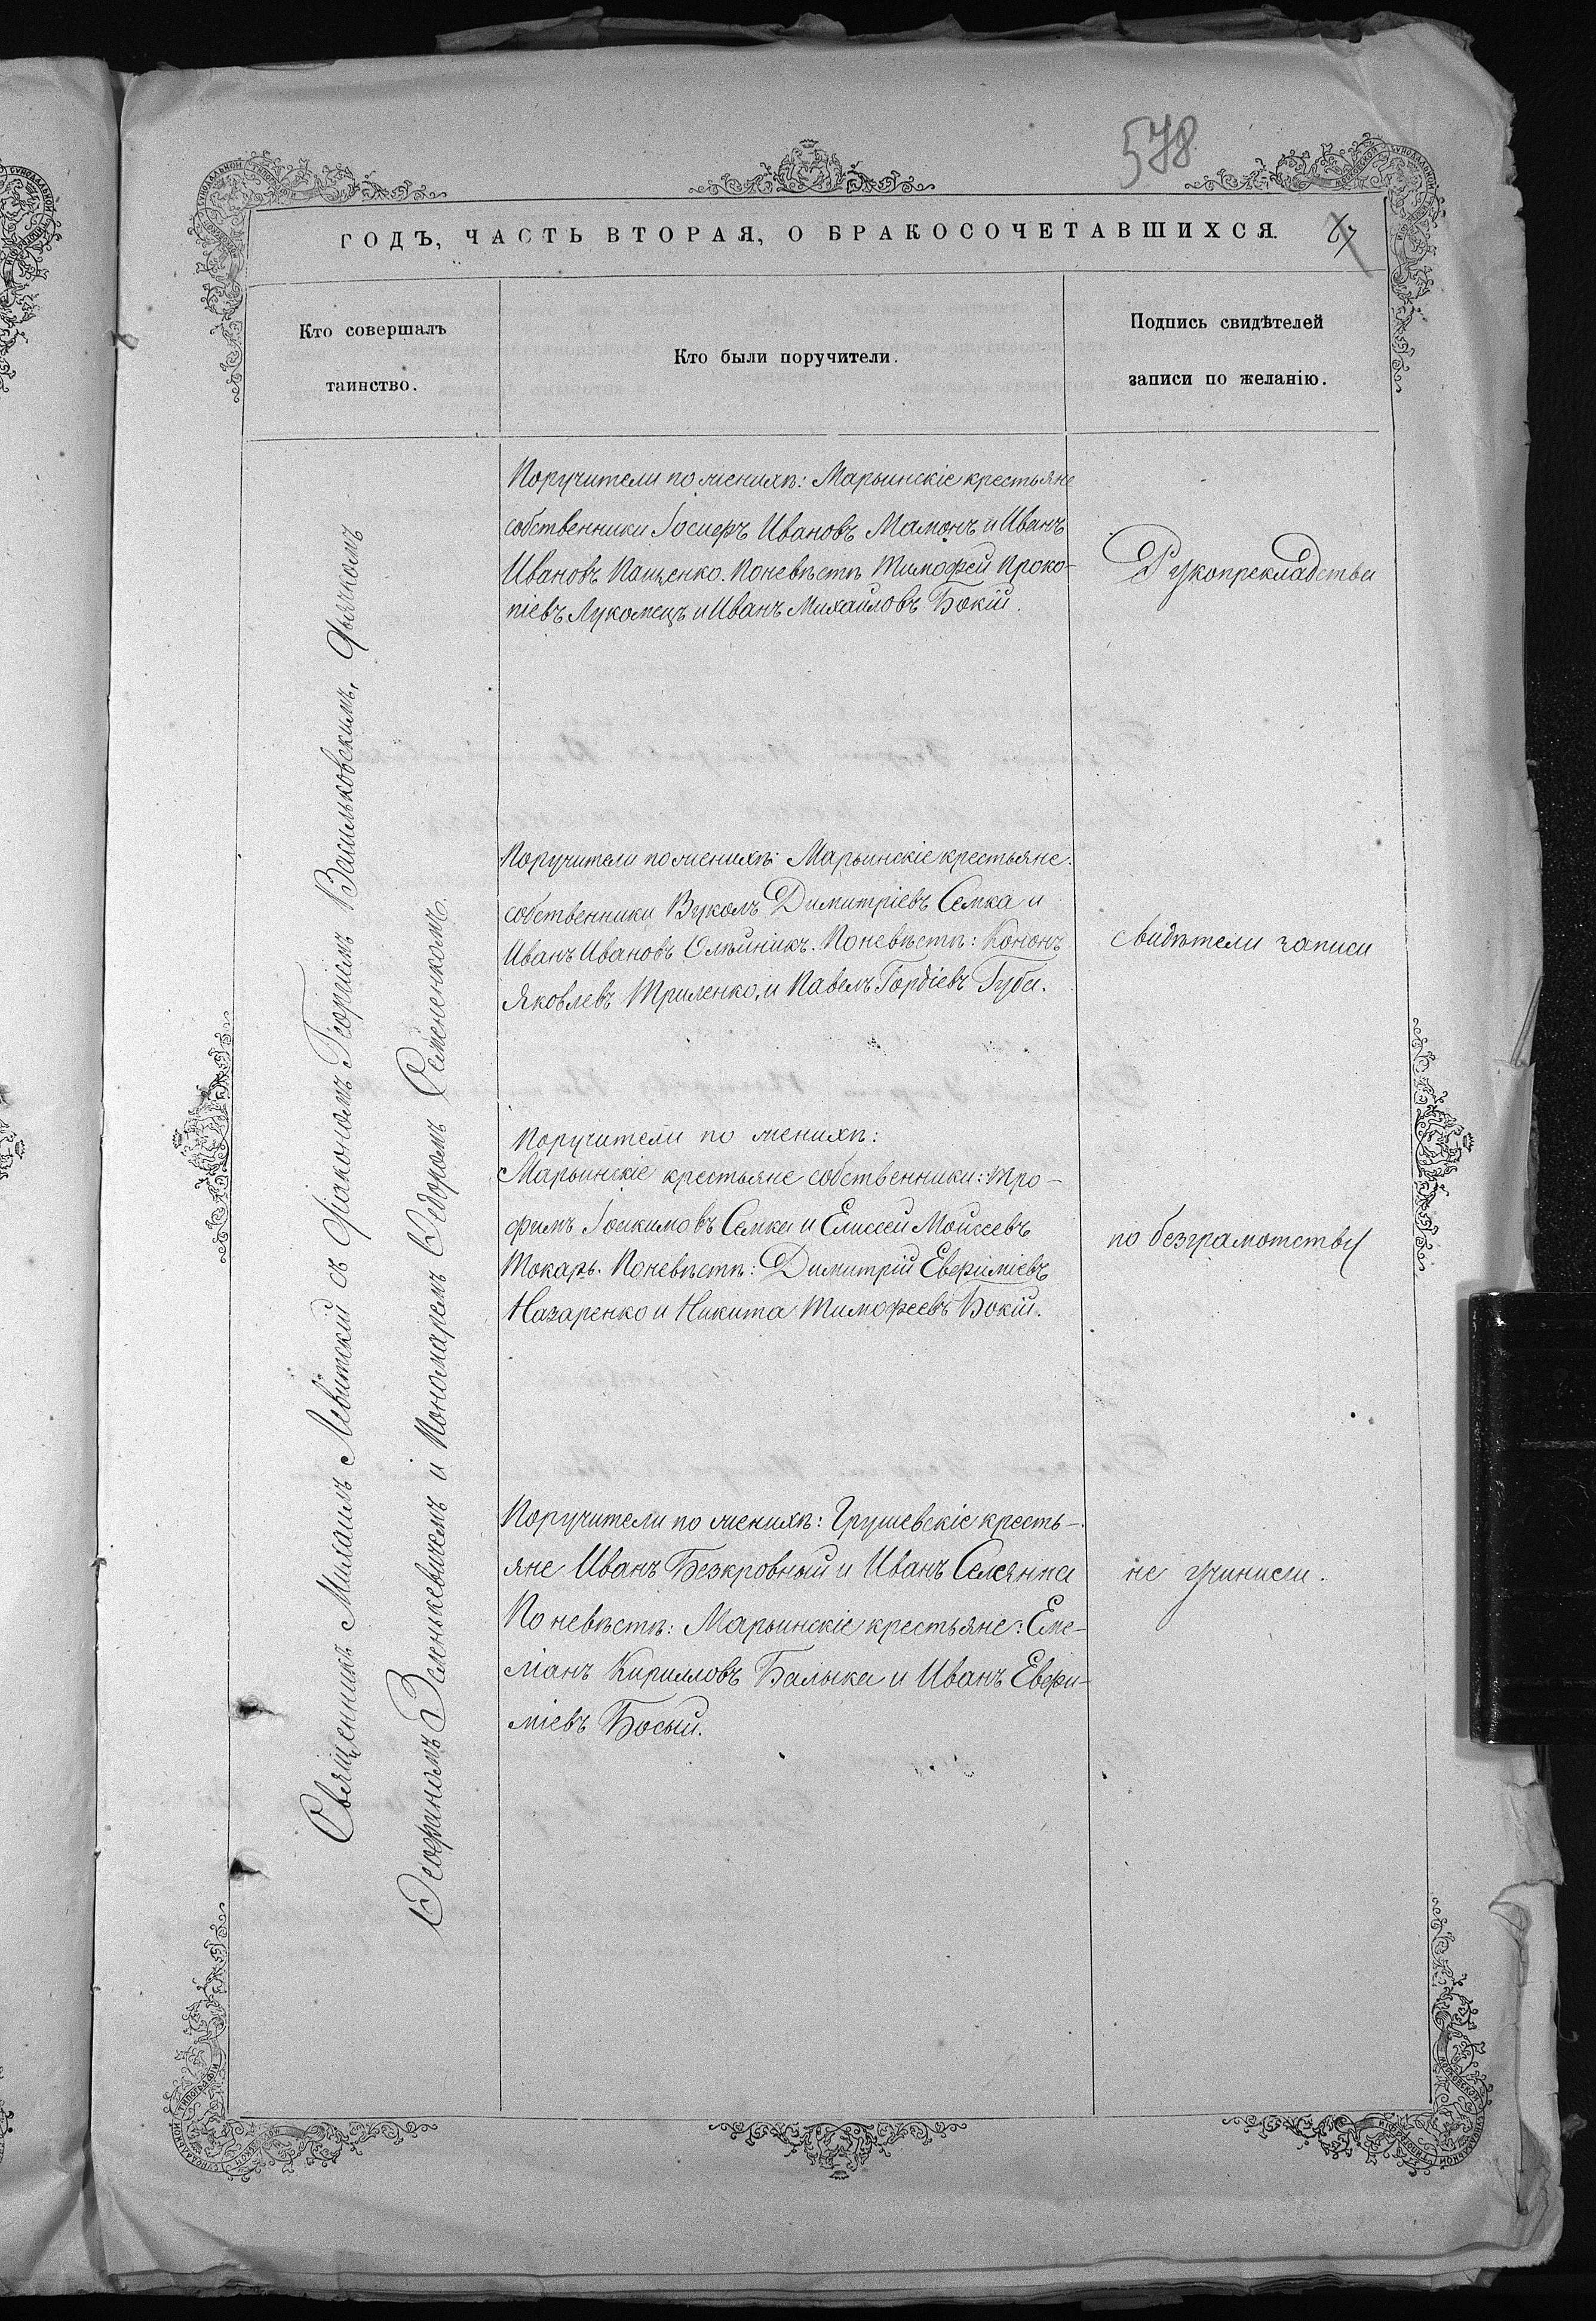 578
ГОДЪ, ЧАСТЬ ВТОРАЯ, О БРАКОСОЧЕТАВШИХСЯ. 67
Кто совершалъ
таинство.
Кто были поручители.
Подпись свидѣтелей
записи по желанію.
Священникъ Михаилъ Левитскій съ Діакономъ Георгіемъ Васильковскимъ, Дьячкомъ
Ѳеофиномъ Зеленькевичемъ и Пономаремъ Ѳедоромъ Семененкомъ.
Поручители по женихѣ: Марьинскіе крестьяне
собственники Іосифъ Ивановъ Мамонъ и Иванъ
Ивановъ Пащенко. По невѣстѣ Тимофей Проко-
піевъ Лукомецъ и Иванъ Михайловъ Бокій.
Поручители по женихѣ: Марьинскіе крестьяне.
собственники Вуколъ Димитріевъ Семка и
Иванъ Ивановъ Олѣйникъ. По невѣстѣ: Кононъ
Яковлевъ Триленко, и Павелъ Гордіевъ Губа.
Поручители по женихѣ:
Марьинскіе крестьяне собственники: Тро-
фимъ Іоакимовъ Семка и Елисей Моисеевъ
Токарь. По невѣстѣ: Димитрій Евфиміевъ
Назаренко и Никита Тимофеевъ Бокій.
Поручители по женихѣ: Грушевскіе кресть-
яне Иванъ Безкровный и Иванъ Селянка
По невѣстѣ: Марьинскіе крестьяне: Еме-
ліанъ Кирилловъ Балыка и Иванъ Евфи-
міевъ Босый.
Рукопрекладства
свидѣтели записи
по безграмотству
не учинили.